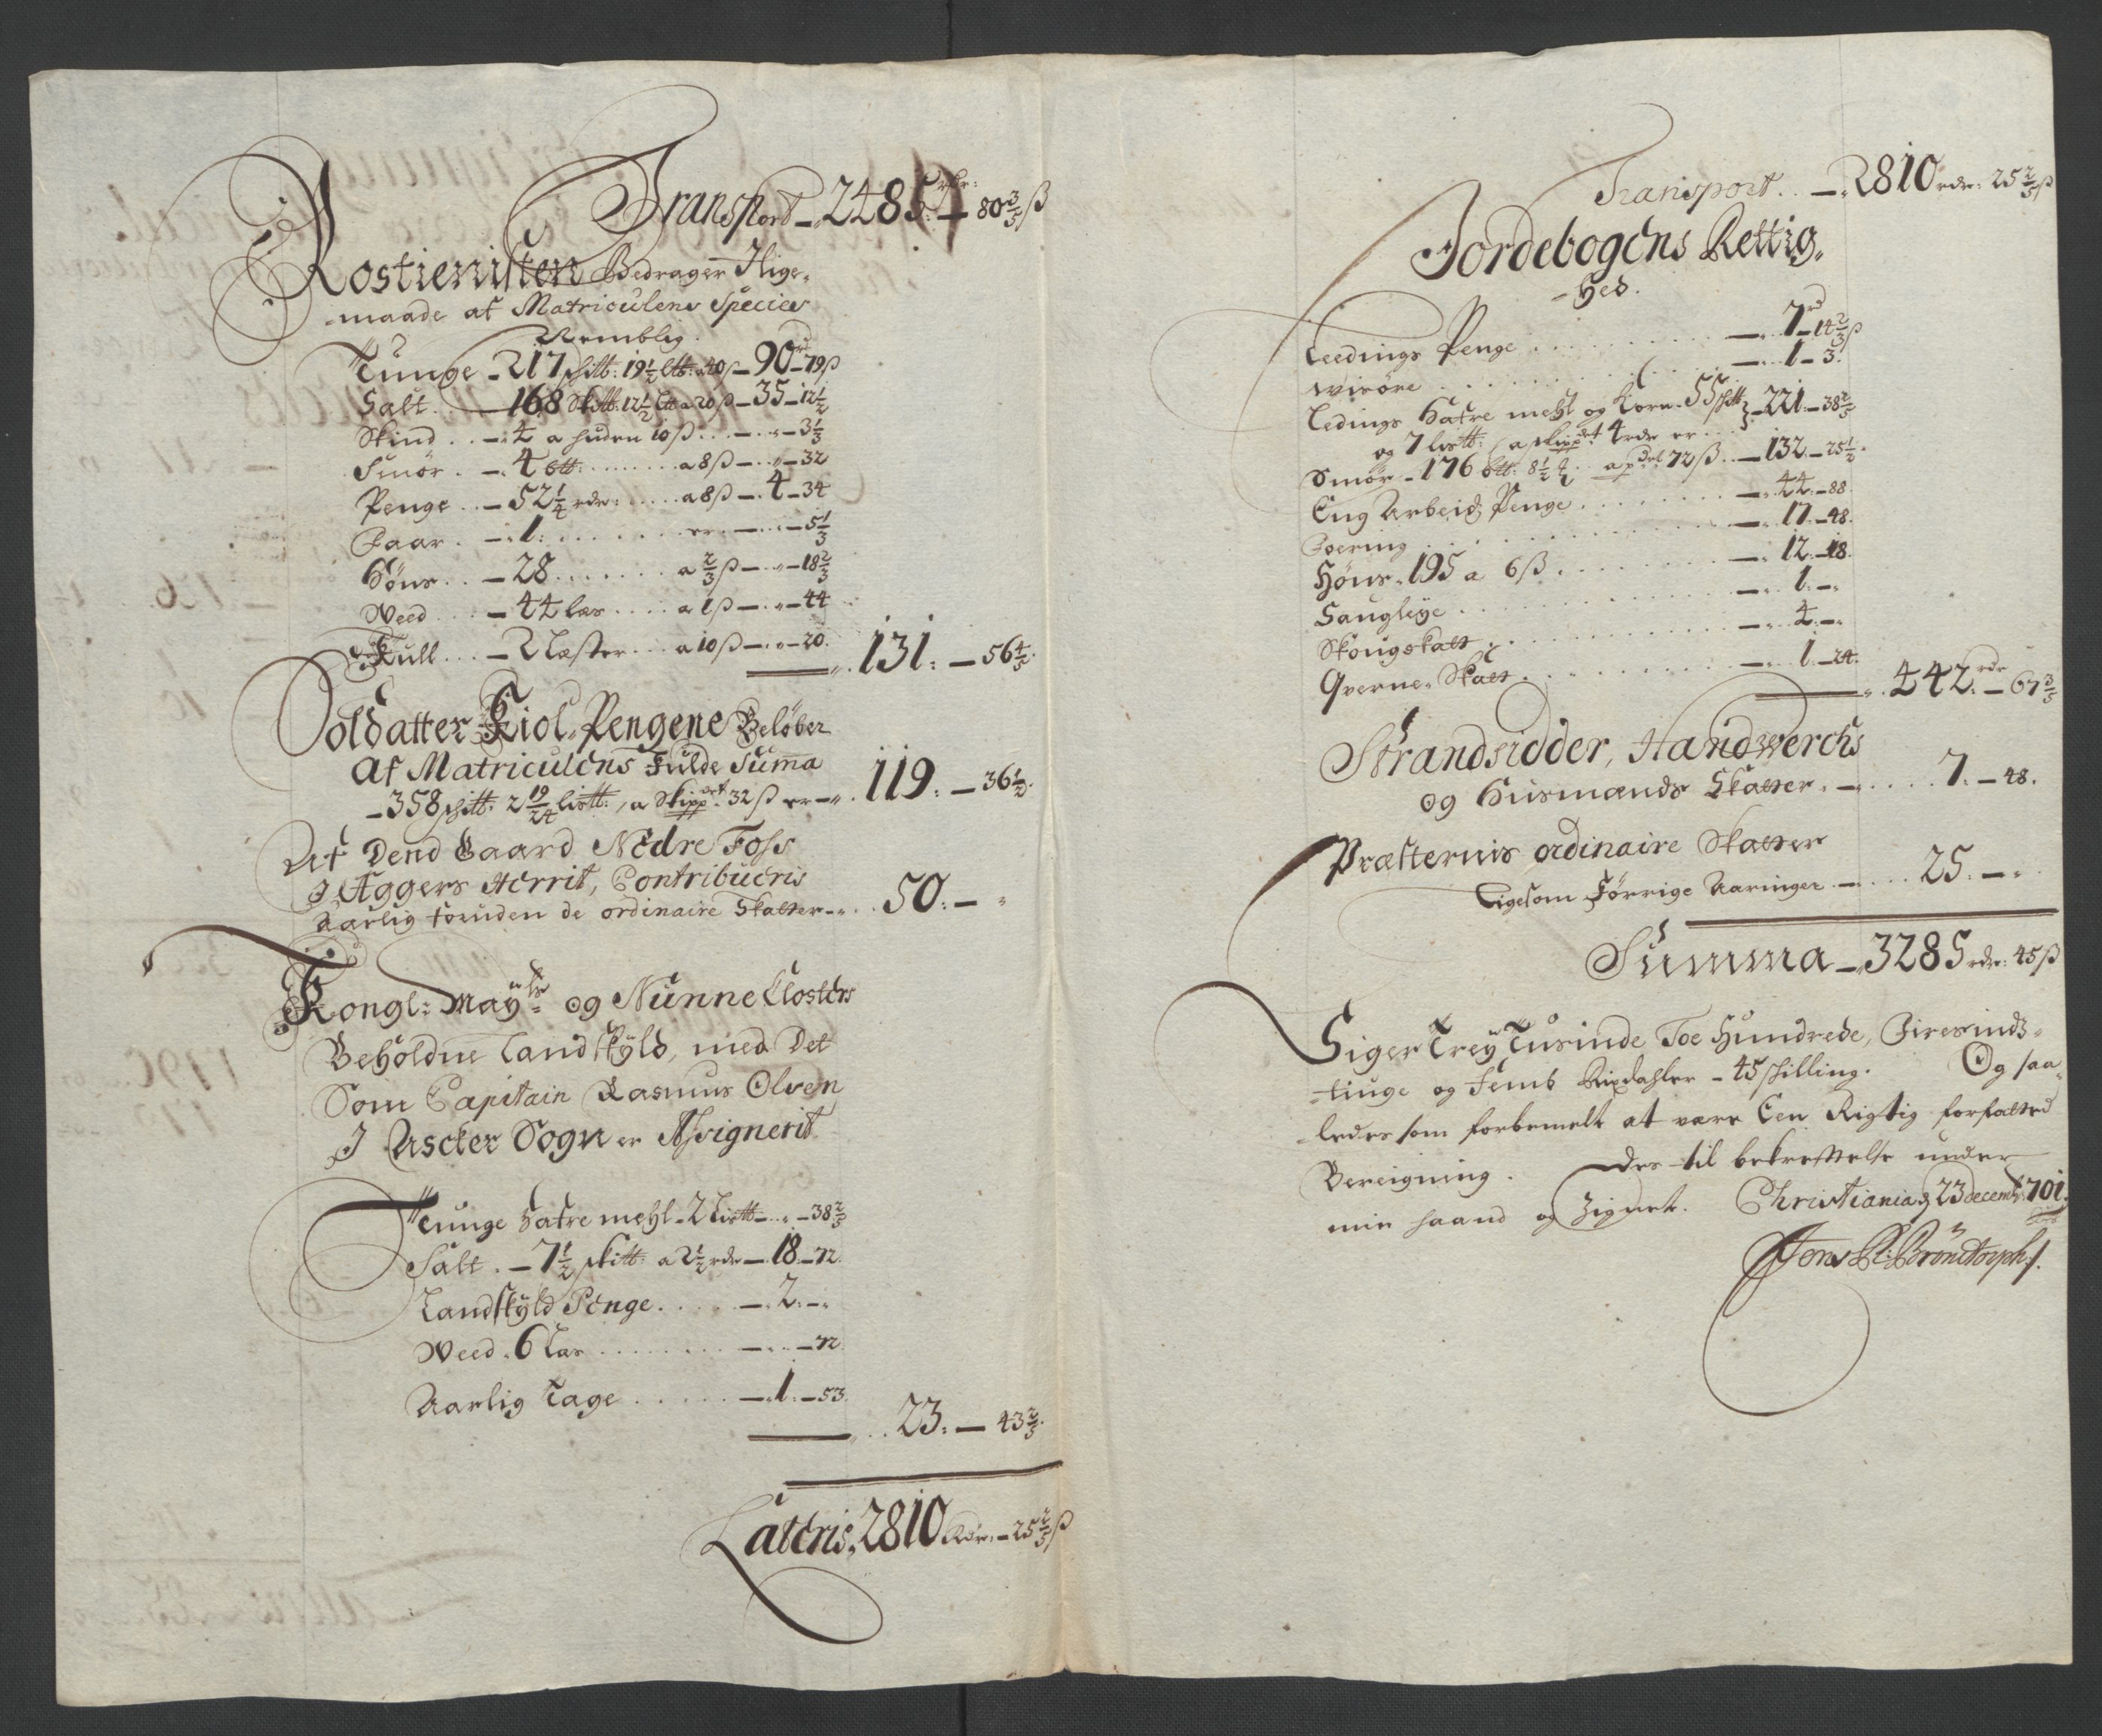 Transport – 2485 rdr: – 80 3/5 ß
Rostienisten Bedrager Ilige-
-maade af Matriculens Species
Nemblig.
Tunge – 217 skitt: 19 1/2 ltt: a 40 ß – 90 rd – 79 ß
Salt. – 168 Skitt: 12 1/2 ltt a 20 ß – 35 – 12 1/2
Skind .. – 4 a huden 10 ß ... – .. – 3 1/3
Smör . – 4 btt: ...... a 8 ß – .. – 32
Penge .. – 52 1/4 rdr: .... a 8 ß – . 4 – 34
Faar . – 1: ....... er – .. – 5 1/3
Höns .. – 28 ...... a 2/3 ß – .. – 18 2/3
Weed ... – 44 læs .... a 1 ß – .. – 44
Kull ... – 2 Læster ... a 10 ß – .. – 20.
131: – 56 4/5.
Soldatter Kiol-Pengene Beløber
Af Matriculens Fulde Summa
– 358 skitt: 2 19/24 listt:, a Skippdt 32 ß er – . 119: – 36 1/2.
Af Dend Gaard Nedre Foss
I Aggers Herrit, Contribueris
Aarlig foruden de ordinaire Skatter – .. 50: –
Kongl: Mayts: og Nunne Closters
Beholdne Landskyld, med Det
Som Capitain Rasmus Olven
I Ascker Sogn er Assignerit
Tunge Hafre mehl – 2 Listt – .. – 38 2/5
Salt . – 7 1/2 skitt: a 2 1/2 rdr – 18 – 72.
Landskyld Penge ..... – . 2: –
Weed . 6 Læs ........ – .. – 72
Aarlig Tage ...... – . 1: – 53.
.. 23: – 43 2/5.
Lateris, 2810 Rdr: – 25 2/5 ß
Transport .. – 2810 rdr: 25 2/5 ß
Jordebogens Rettig-
-hed.
Leedings Penge ........ – . 7 rd – 14 2/3 ß
Wisöre ........ – .. 1 – 3.
Ledings Hafre mehl og Korn – 55 skitt
og 7 listt: a skippdt 4 rdr er ... – 221 – 38 2/5
Smör – 176 btt: 8 1/2 ℔ .. a pdel 72 ß .. – 132 – 25 1/2.
Eng Arbeids Penge ....... – .. 44 – 88.
Foering ........ – . 17 – 48.
Höns – 195 a 6 ß ....... – . 12 – 18.
Saugleye ......... – .. 1 – .
Skougskatt ......... – .. 4 – .
Qverne-Skatt ........ – .. 1 – 24.
. 442 rdr – 67 3/5
Strandsidder, Handwerchs
og Husmænds Skatter . – .... 7. – 48.
Præsternis ordinaire Skatter
Ligesom Forrige Aaringer – ... 25. – .
Summa – 3285 rdr: 45 ß
Siger Trey Tusinde Toe Hundrede, Firesinds-
-tiuge og Femb Rixdahler – 45 skilling. Og saa-
-ledes som forbemelt at være Een Rigtig forfatted
Bereigning. Des til bekreftelse under
min haand og Zignet. Christiania d 23 decemb: 1701.
Jens Brönstorph.